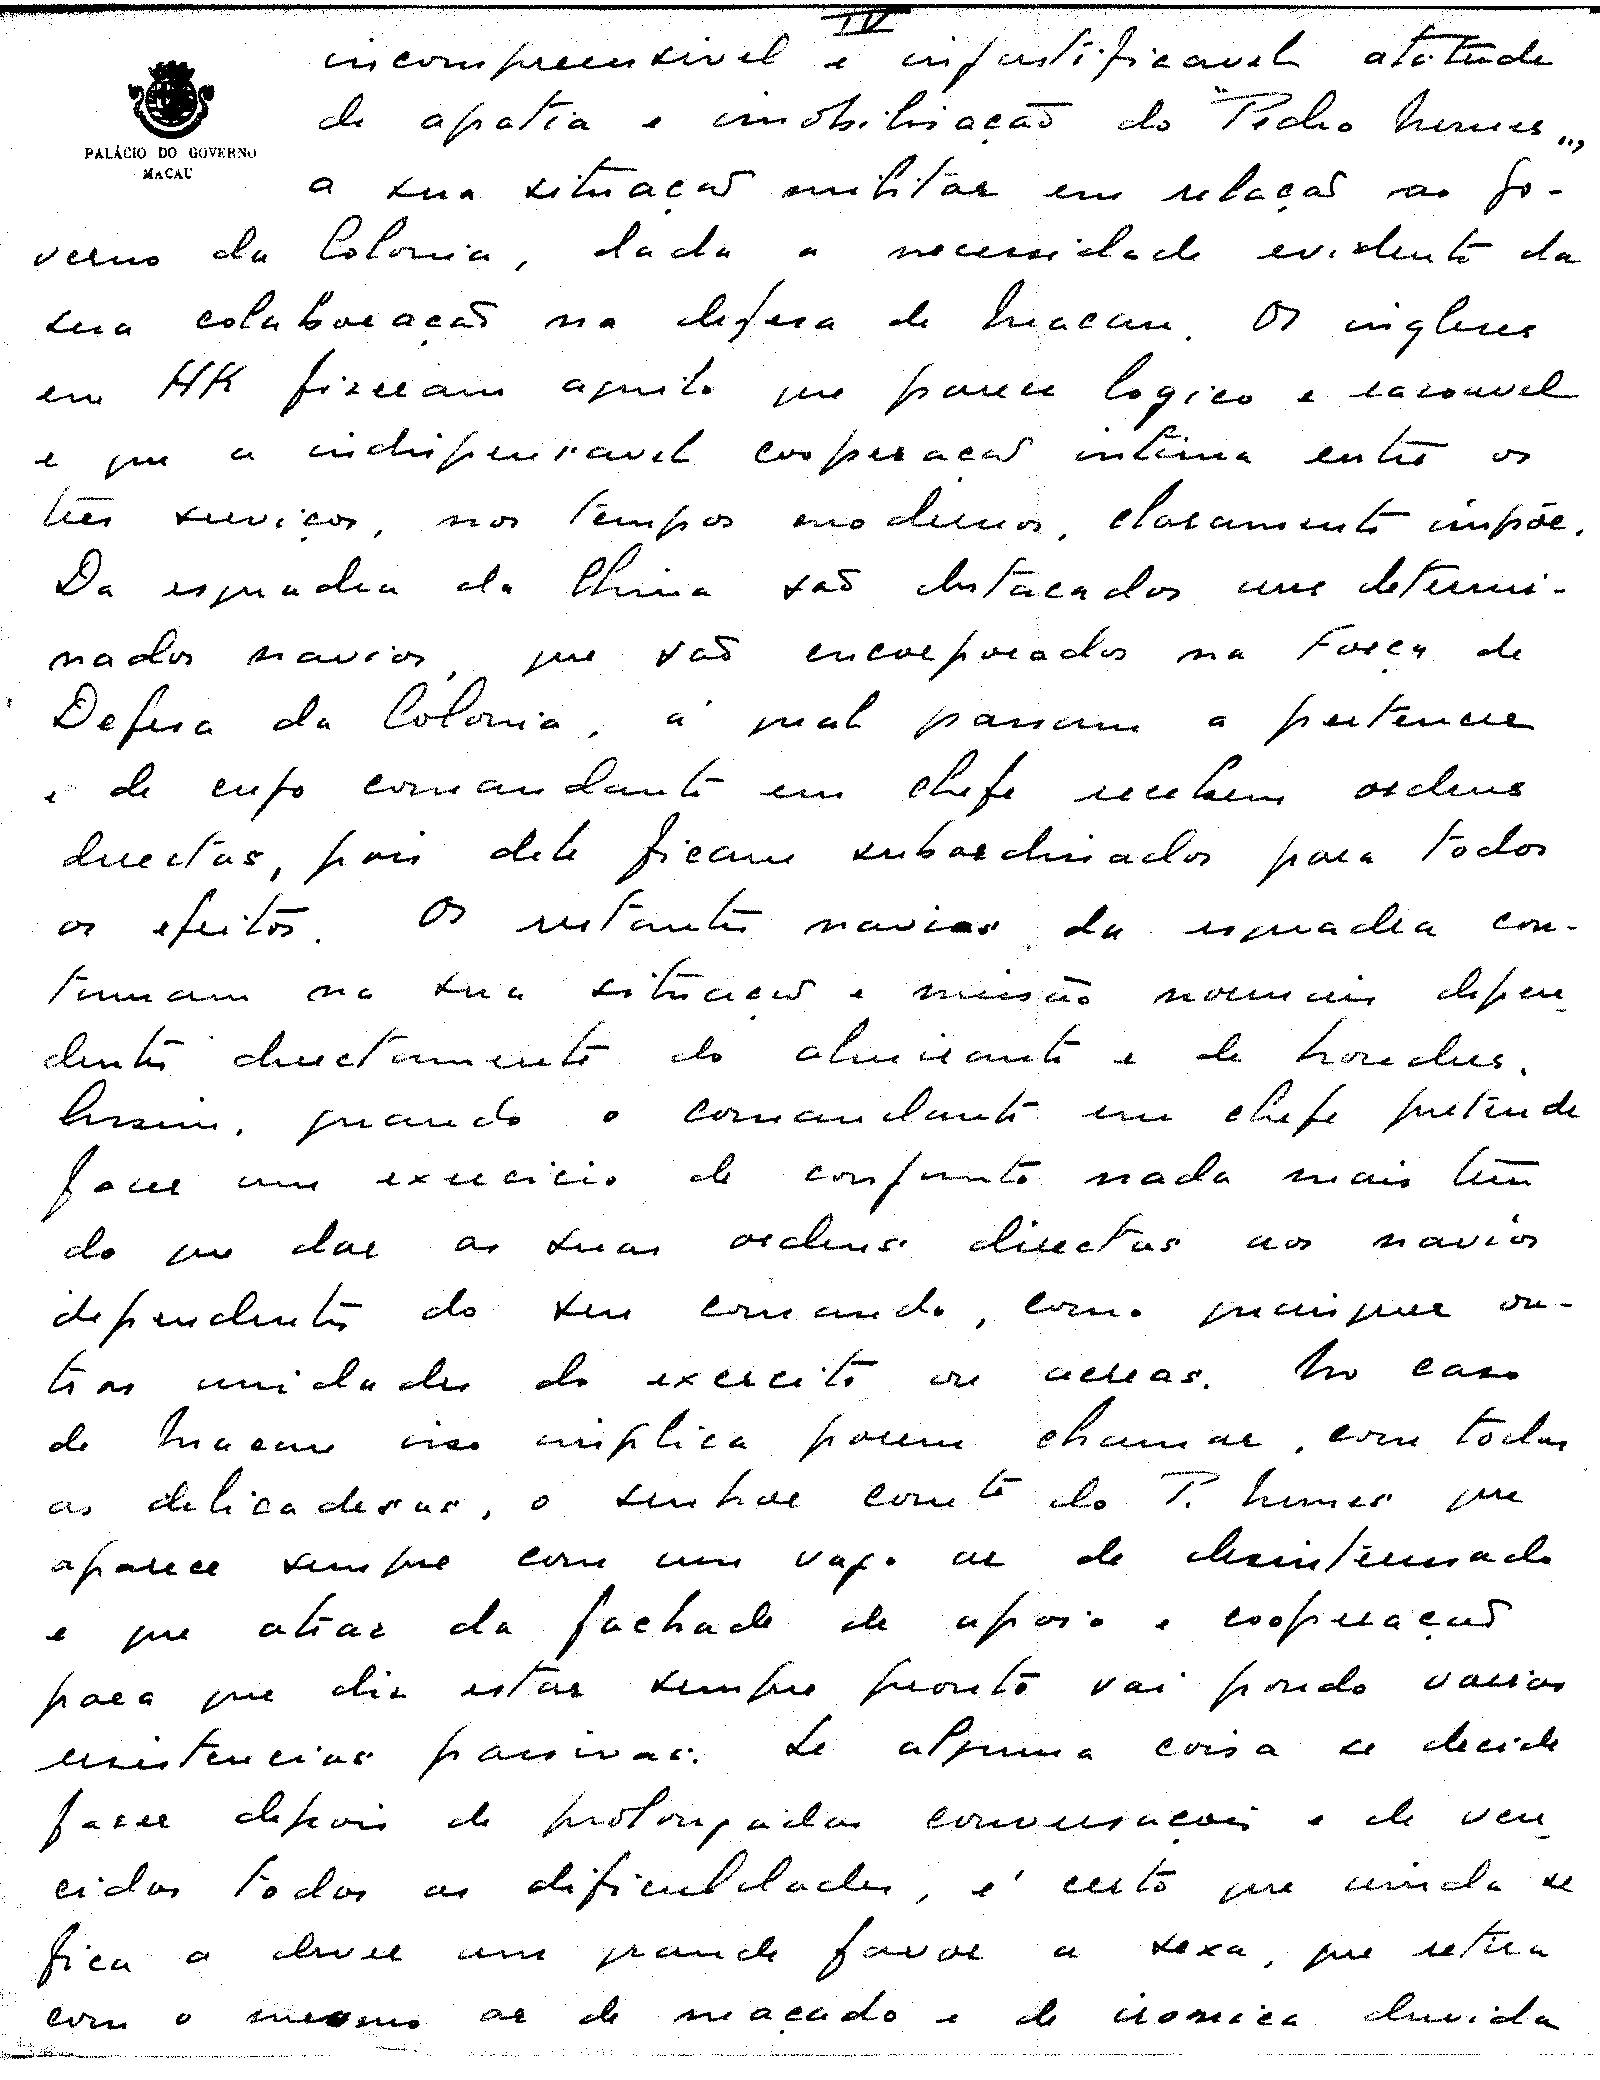 IV
PALÁCIO DO GOVERNO
MACAU
incompreensivel e injustificavel atitude
de apatia e imobilisação do "Pedro Nunes",
a sua situação militar em relação ao go-
verno da Colonia, dada a necessidade evidente da
sua colaboração na defesa de Macau. Os ingleses
em HK fizeram aquilo que parece logico e razoavel
e que a indispensavel cooperação intima entre os
tres serviços, nos tempos modernos, claramente impõe.
Da esquadra da China são destacados uns determi-
nados navios, que são encorporados na Força de
Defesa da Colonia, á qual passam a pertencer
e de cujo comandante em chefe recebem ordens
directas, pois dele ficam subordinados para todos
os efeitos. Os restantes navios da esquadra con-
tinuam na sua situação e missão normais depen-
dentes directamente do almirante e de Londres.
Assim, quando o comandante em chefe pretende
fazer um exercicio de conjunto nada mais tem
do que dar as suas ordens directas aos navios
dependentes do seu comando, como quaisquer ou-
tras unidades do exercito ou aereas. No caso
de Macau isso implica porem chamar, com todas
as delicadesas, o senhor comte do P. Nunes que
aparece sempre com um vago ar de desinteressado
e que atraz da fachade de apoio e cooperação
para que diz estar sempre pronto vai pondo varias
resistencias passivas. Se alguma coisa se decide
fazer depois de prolongadas conversações e de ven-
cidas todas as dificuldades, é certo que ainda se
fica a dever um grande favor a sexa, que retira
com o mesmo ar de maçado e de ironica duvida